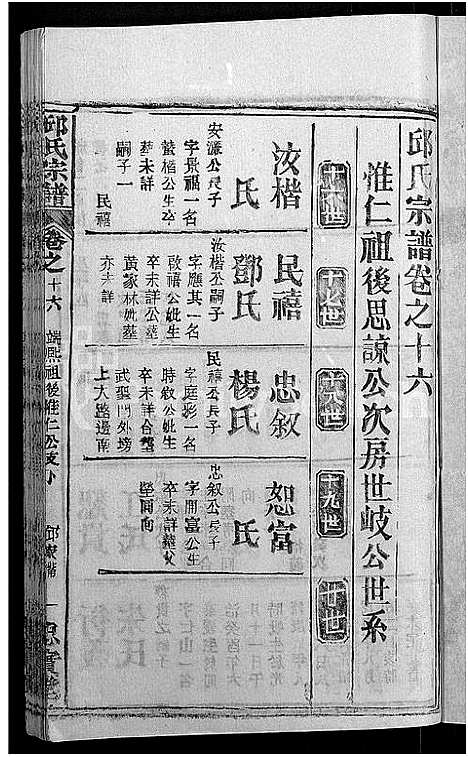 邱氏宗譜卷之十六
惟仁祖後思諒公次房世岐公世系
十六世
十七世
十八世
十九世
廿世
汝楷
氏
安濂公長子
字景福一名
螢楷公生卒
葬未詳
嗣子一
民禧
民禧
鄧氏
汝楷公嗣子
字應其一名
啟禧公妣生
卒未詳公葬
黃家林妣墓
亦未詳
忠叙
楊氏
民禧公長子
字庭彰一名
時叙公妣生
卒未詳合塟
武聖門外塝
上大路邊南
恕富
氏
忠叙公長子
字開富公生
卒未詳葬父
塋同向
邱氏宗譜
卷之十六
端熙祖後惟仁公支下
一